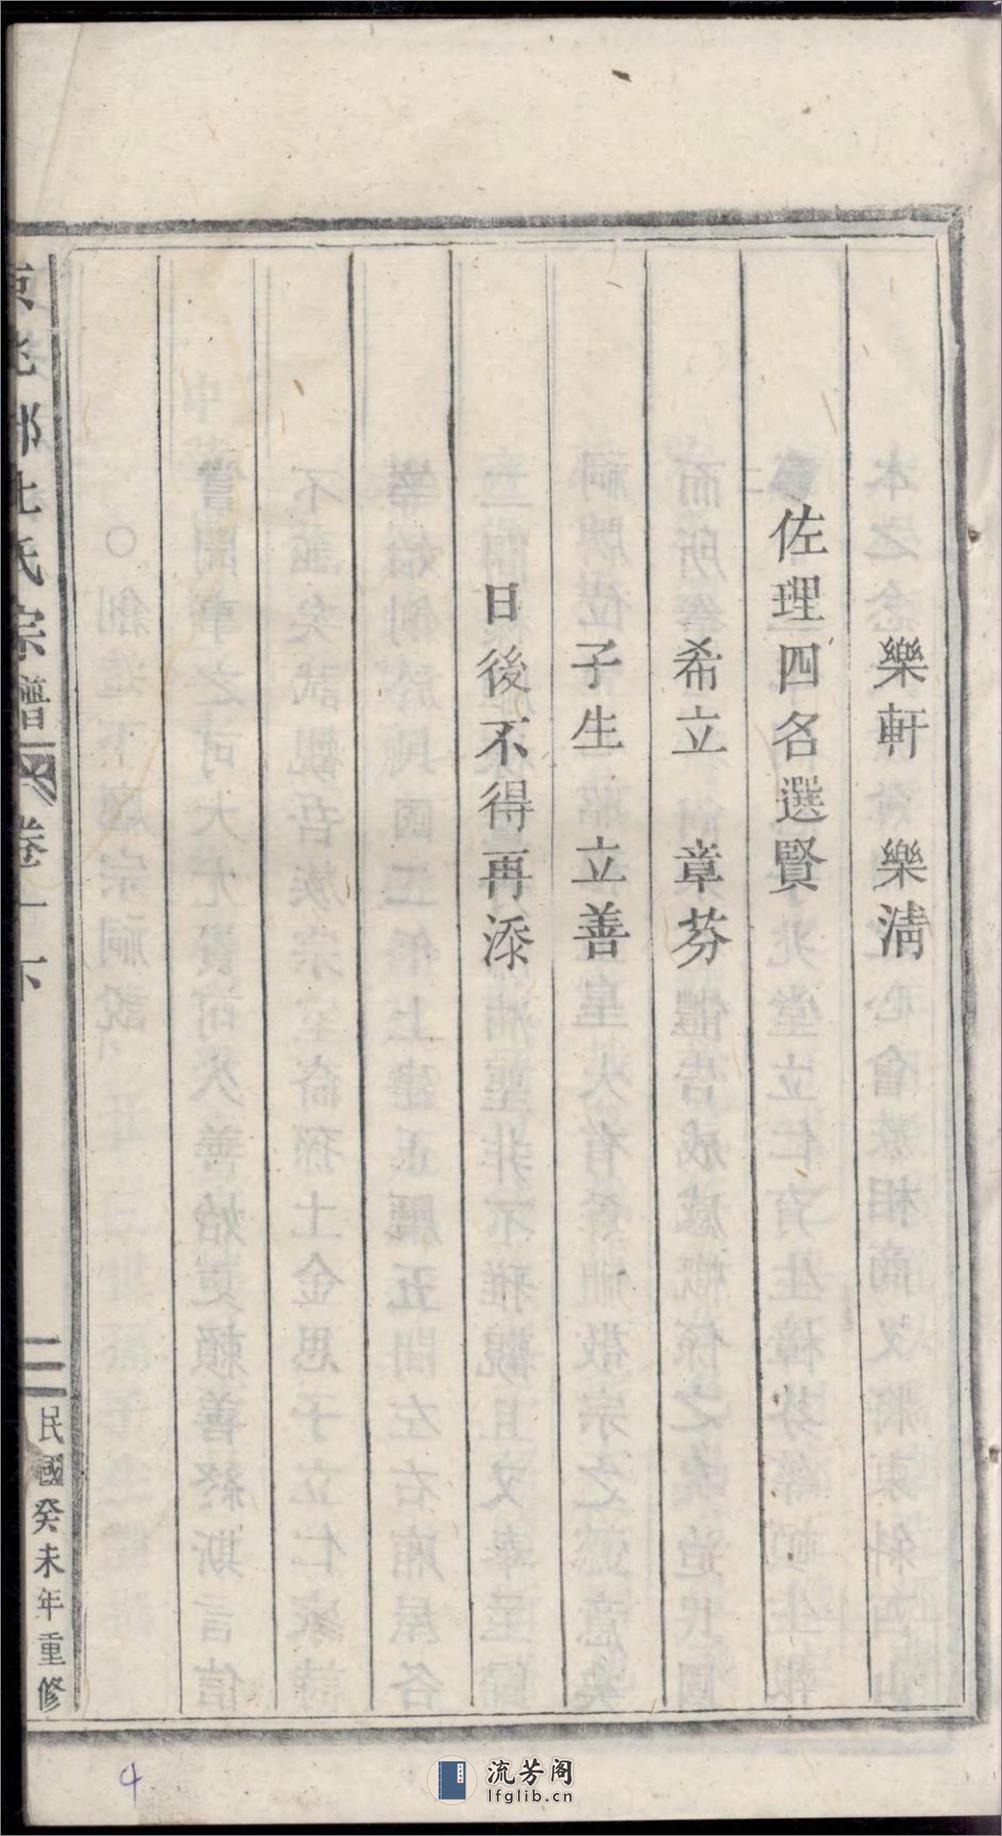 樂軒 樂淸
佐理四名選賢
希立 章芬
子生 立善
日後不得再添
氏宗譜 卷一下
二
民國癸未年重修
4
流芳阁
lfglib.cn